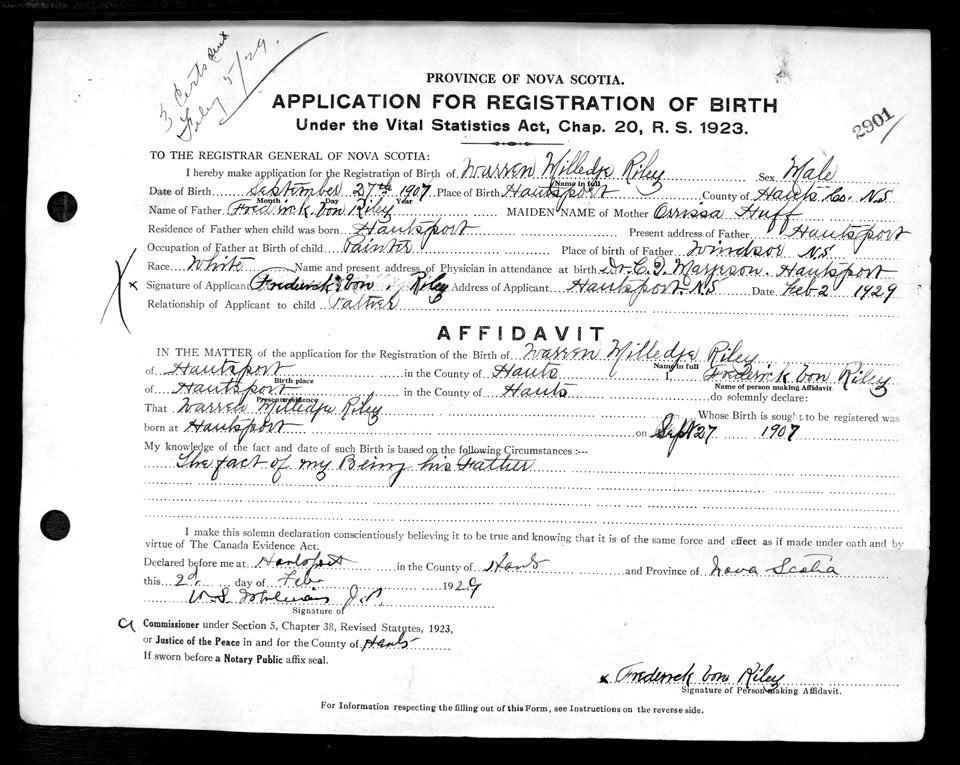 3 Certs Sent
Feby 5/29.
PROVINCE OF NOVA SCOTIA.
APPLICATION FOR REGISTRATION OF BIRTH
Under the Vital Statistics Act, Chap. 20, R. S. 1923.
2901
TO THE REGISTRAR GENERAL OF NOVA SCOTIA:
I hereby make application for the Registration of Birth of Warren Milledge Riley Sex Male
Name in full
Date of Birth September 27th 1907 Place of Birth Hantsport County of Hants Co. N.S
Month Day Year
Name of Father Frederick von Riley MAIDEN NAME of Mother Orissa Huff
Residence of Father when child was born Hantsport Present address of Father Hantsport
Occupation of Father at Birth of child Painter Place of birth of Father Windsor N.S
Race White Name and present address of Physician in attendance at birth Dr. C. Hantsport
x Signature of Applicant Frederick von Riley Address of Applicant Hantsport N.S Date Feb 2 1929
Relationship of Applicant to child Father
AFFIDAVIT
IN THE MATTER of the application for the Registration of the Birth of Warren Milledge Riley
Name in full
of Hantsport in the County of Hants I, Frederick von Riley
Birth place Name of person making Affidavit
of Hantsport in the County of Hants do solemnly declare:
Present residence
That Warren Milledge Riley Whose Birth is sought to be registered was
born at Hantsport on Sept 27 1907
My knowledge of the fact and date of such Birth is based on the following Circumstances :—
The fact of my Being his Father
I make this solemn declaration conscientiously believing it to be true and knowing that it is of the same force and effect as if made under oath and by
virtue of The Canada Evidence Act.
Declared before me at Hantsport in the County of Hants and Province of Nova Scotia
this 2d. day of Feby 1929
J.P.
Signature of
a Commissioner under Section 5, Chapter 38, Revised Statutes, 1923,
or Justice of the Peace in and for the County of Hants
If sworn before a Notary Public affix seal.
x Frederick von Riley
Signature of Person making Affidavit.
For Information respecting the filling out of this Form, see Instructions on the reverse side.